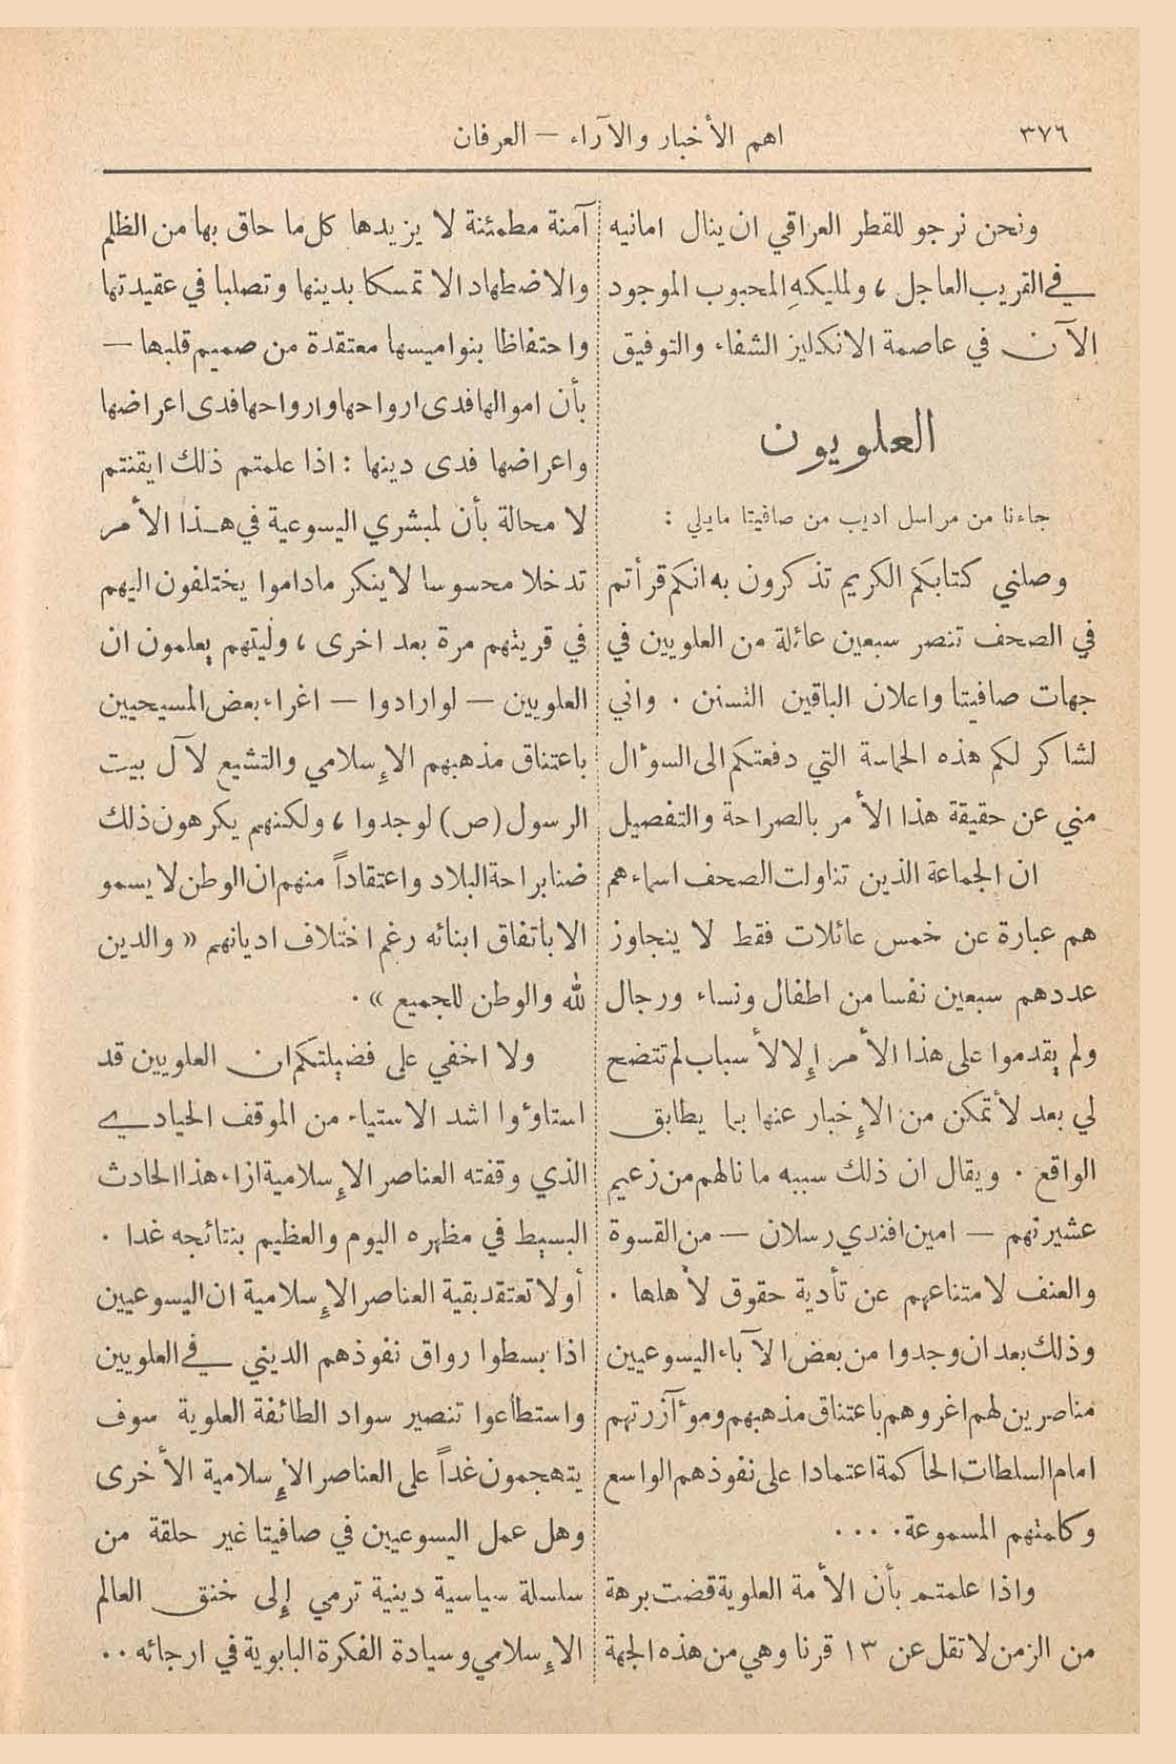 ٣٧٦
اهم الأخبار والآراء – العرفان
ونحن نرجو للقطر العراقي ان ينال امانيه
في القريب العاجل ، ولمليكهِ المحبوب الموجود
الآن في عاصمة الانكليز الشفاء والتوفيق
العلويون
جاءنا من مراسل اديب من صافيتا مايلي :
وصلني كتابكم الكريم تذكرون به انكم قرأتم
في الصحف تنصر سبعين عائلة من العلويين في
جهات صافيتا واعلان الباقين التسنن . واني
لشاكر لكم هذه الحماسة التي دفعتكم الى السوٴال
مني عن حقيقة هذا الأمر بالصراحة والتفصيل
ان الجماعة الذين تناولت الصحف اسماءهم
هم عبارة عن خمس عائلات فقط لا يتجاوز
عددهم سبعين نفسا من اطفال ونساء ورجال
ولم يقدموا على هذا الأمر إلا لأسباب لم تتضح
لي بعد لأتمكن من الإخبار عنها بما يطابق
الواقع . ويقال ان ذلك سببه ما نالهم من زعيم
عشيرتهم – امين افندي رسلان – من القسوة
والعنف لامتناعهم عن تأدية حقوق لأهلها .
وذلك بعد ان وجدوا من بعض الآباء اليسوعيين
مناصرين لهم اغروهم باعتناق مذهبهم وموٴآزرتهم
امام السلطات الحاكمة اعتمادا على نفوذهم الواسع
وكلمتهم المسموعة . . . .
واذا علمتم بأن الأمة العلوية قضت برهة
من الزمن لا تقل عن ١٣ قرنا وهي من هذه الجهة
آمنة مطمئنة لا يزيدها كل ما حاق بها من الظلم
والاضطهاد الا تمسكا بدينها وتصلبا في عقيدتها
واحتفاظا بنواميسها معتقدة من صميم قلبها –
بأن اموالها فدى ارواحها وارواحها فدى اعراضها
واعراضها فدى دينها : اذا علمتم ذلك ايقنتم
لا محالة بأن لمبشري اليسوعية في هذا الأمر
تدخلا محسوسا لا ينكر ماداموا يختلفون اليهم
في قريتهم مرة بعد اخرى ، وليتهم يعلمون ان
العلويين – لو ارادوا – اغراء بعض المسيحيين
باعتناق مذهبهم الإسلامي والتشيع لآل بيت
الرسول (ص) لوجدوا ، ولكنهم يكرهون ذلك
ضنا براحة البلاد واعتقاداً منهم ان الوطن لا يسمو
الا باتفاق ابنائه رغم اختلاف اديانهم « والدين
لله والوطن للجميع » .
ولا اخفي على فضيلتكم ان العلويين قد
استاوٴوا اشد الاستياء من الموقف الحيادي
الذي وقفته العناصر الإسلامية ازاء هذا الحادث
البسيط في مظهره اليوم والعظيم بنتائجه غدا .
أولا تعتقد بقية العناصر الإسلامية ان اليسوعيين
اذا بسطوا رواق نفوذهم الديني في العلويين
واستطاعوا تنصير سواد الطائفة العلوية سوف
يتهجمون غداً على العناصر الإسلامية الأخرى
وهل عمل اليسوعيين في صافيتا غير حلقة من
سلسلة سياسية دينية ترمي إلى خنق العالم
الإسلامي وسيادة الفكرة البابوية في ارجائه . .